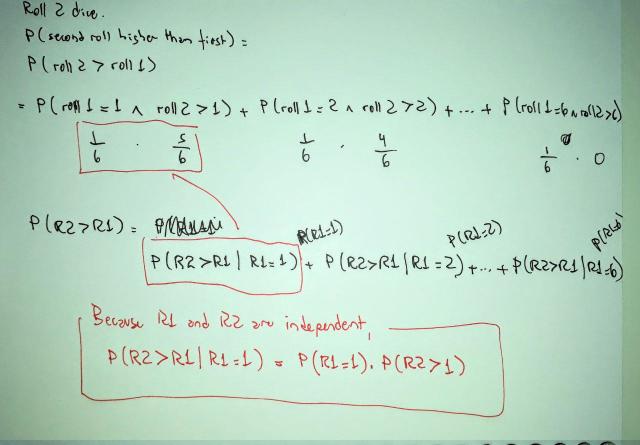 Roll 2 dice.
P(second roll higher than first) =
P(roll 2 > roll 1)
= P(roll 1 = 1 ∧ roll 2 > 1) + P(roll 1 = 2 ∧ roll 2 > 2) + ... + P(roll 1 = 6 ∧ roll 2 > 6)
1/6 · 5/6 1/6 · 4/6 1/6 · 0
P(R2 > R1) =
P(R1=1) P(R1=2) P(R1=6)
P(R2 > R1 | R1 = 1) + P(R2 > R1 | R1 = 2) + ... + P(R2 > R1 | R1 = 6)
Because R1 and R2 are independent,
P(R2 > R1 | R1 = 1) = P(R1 = 1) . P(R2 > 1)